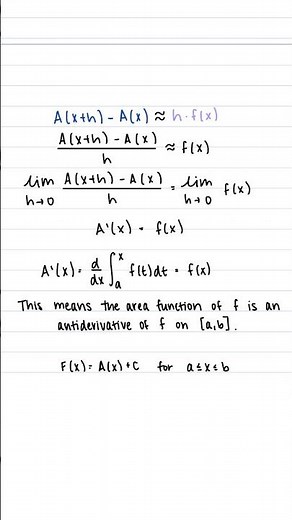 A(x+h) - A(x) ≈ h·f(x)
A(x+h) - A(x) / h ≈ f(x)
lim h→0 A(x+h) - A(x) / h = lim h→0 f(x)
A'(x) = f(x)
A'(x) = d/dx ∫ₐˣ f(t)dt = f(x)
This means the area function of f is an
antiderivative of f on [a,b].
F(x) = A(x) + C for a ≤ x ≤ b